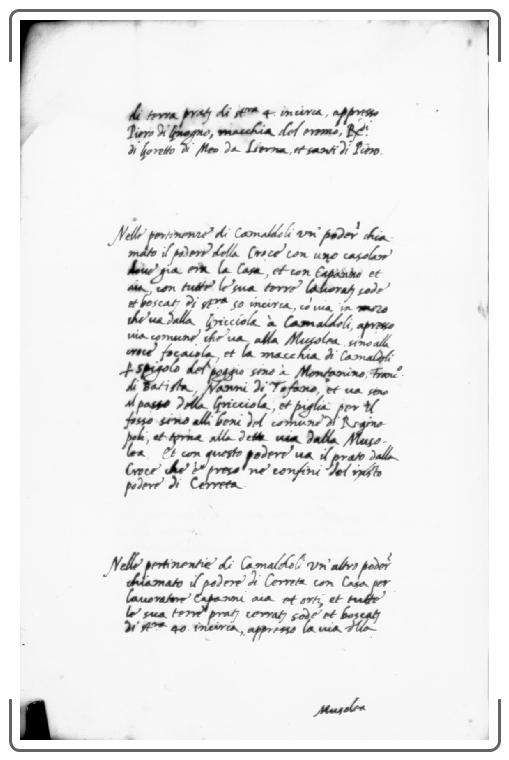 di terra prat; di st.ra 4. incirca, appresso
Piero di Gnogno, macchia del eremo,
di Goretto di Meo da Lierna, et santi di Piero.
Nelle pertinenze di Camaldoli un' poder' chia
mato il podere della Croce con uno casolare
doue gia era la Casa, et con Capanno et
aia, con tutte le sua terre lauorat; sode
et boscat; di st.ra 50 incirca, co' uia in mezo
che ua dalla Gricciola à Camaldoli, apresso
uia comune, che ua alla Musolea, sino alla
croce focaiola, et la macchia di Camaldoli
spigolo del poggio sino à Montanino,
di Batista, Nanni di Tofano, et ua sino
al passo della Gricciola, et piglia per il
fosso sino alli beni del comune di Ragino
poli, et torna alla detta uia dalla Muso-
lea. Et con questo podere ua il prato dalla
Croce che preso ne confini del
podere di Cerreta.
Nelle pertinentie di Camaldoli un' altro poder'
chiamato il podere di Cerreta con Casa per
lauoratore Capanni aia et orti, et tutte
le sua terre prat; cerrat; sode et boscat;
di st.ra 40. incirca, appresso la uia
Musolea